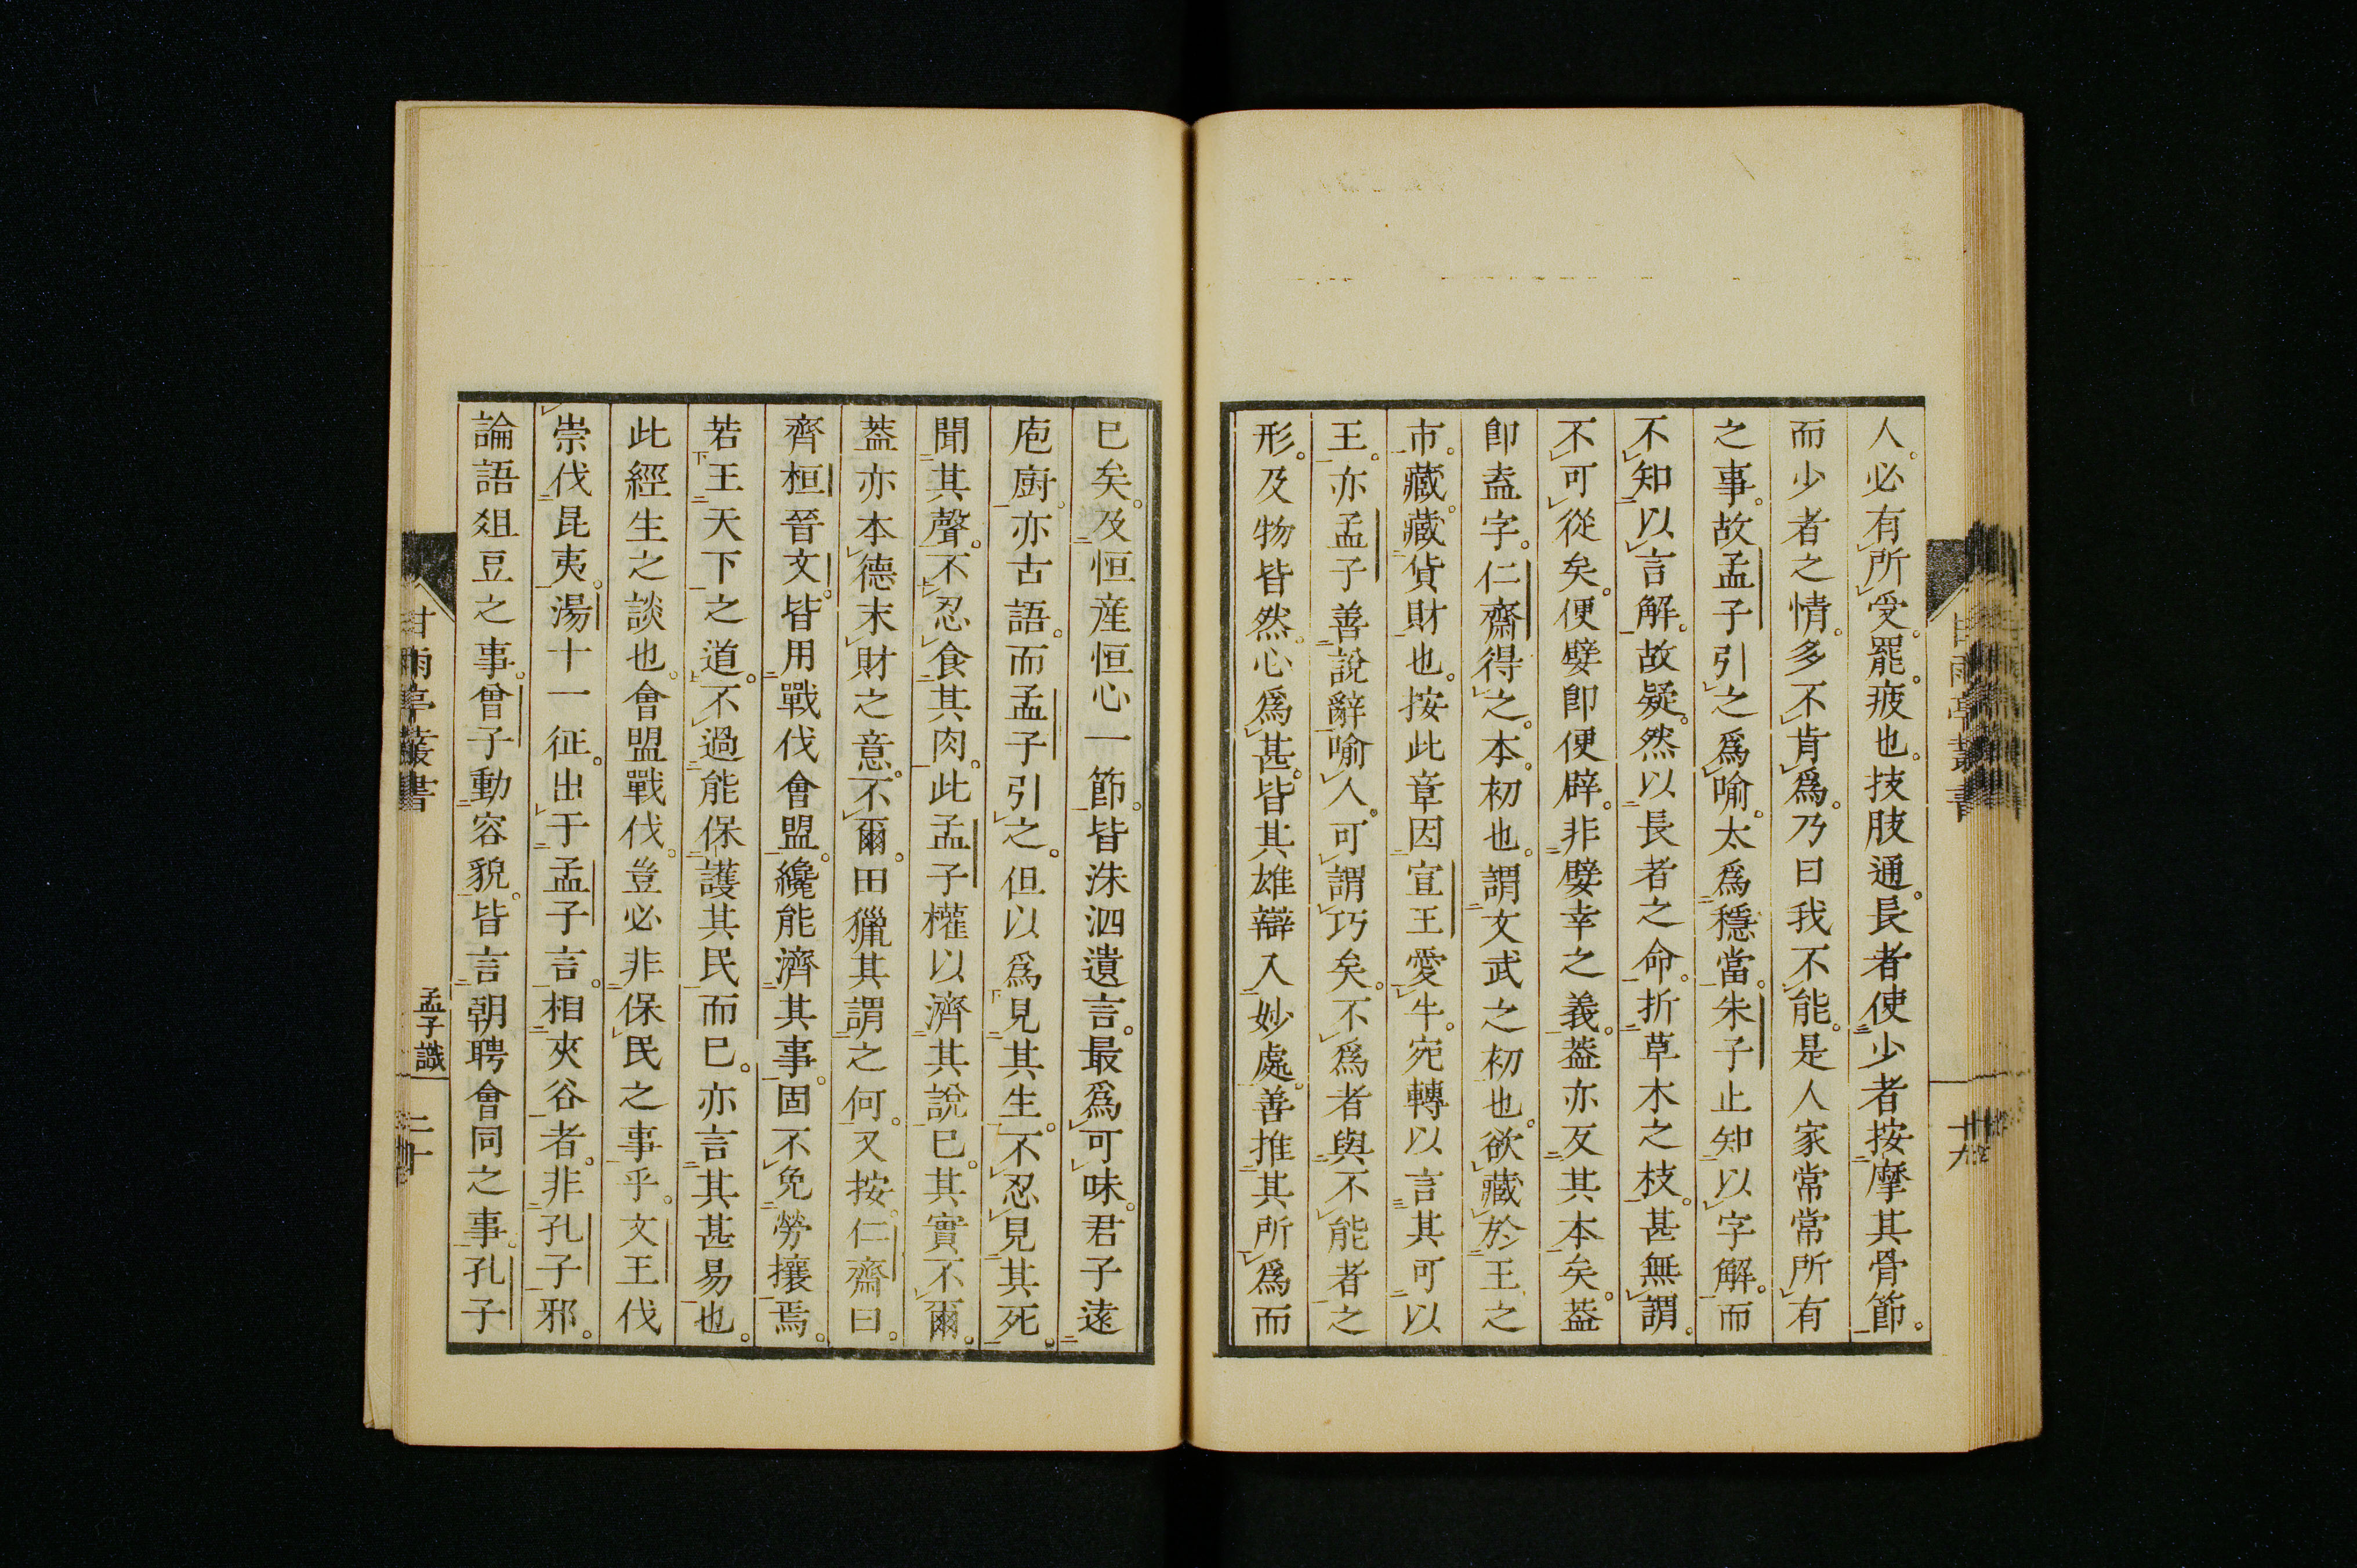 人。必有所受。罷。疲也。技肢通。長者使少者按摩其骨節。
而少者之情。多不肯爲。乃曰我不能。是人家常常所有
之事。故孟子引之爲喻。太爲穩當。朱子止知以字解。而
不知以言解。故疑。然以長者之命。折草木之枝。甚無謂。
不可從矣。便嬖卽便辟。非嬖幸之義。葢亦反其本矣。葢
卽盍字。仁齋得之。本。初也。謂文武之初也。欲藏於王之
市。藏。藏貨財也。按此章因宣王愛牛。宛轉以言其可以
王。亦孟子善說辭喻人。可謂巧矣。不爲者與不能者之
形。及物皆然。心爲甚。皆其雄辯入妙處。善推其所爲而
已矣。及恒產恒心一節。皆洙泗遺言。最爲可味。君子遠
庖廚。亦古語。而孟子引之。但以爲見其生。不忍見其死。
聞其聲。不忍食其肉。此孟子權以濟其說已。其實不爾。
葢亦本德末財之意。不爾。田獵其謂之何。又按。仁齋曰。
齊桓晉文。皆用戰伐會盟。纔能濟其事。固不免勞攘焉。
若王天下之道。不過能保護其民而已。亦言其甚易也。
此經生之談也。會盟戰伐。豈必非保民之事乎。文王伐
崇伐昆夷。湯十一征。出于孟子言。相夾谷者。非孔子邪。
論語俎豆之事。曾子動容貌。皆言朝聘會同之事。孔子
甘雨亭叢書
孟子識
二十